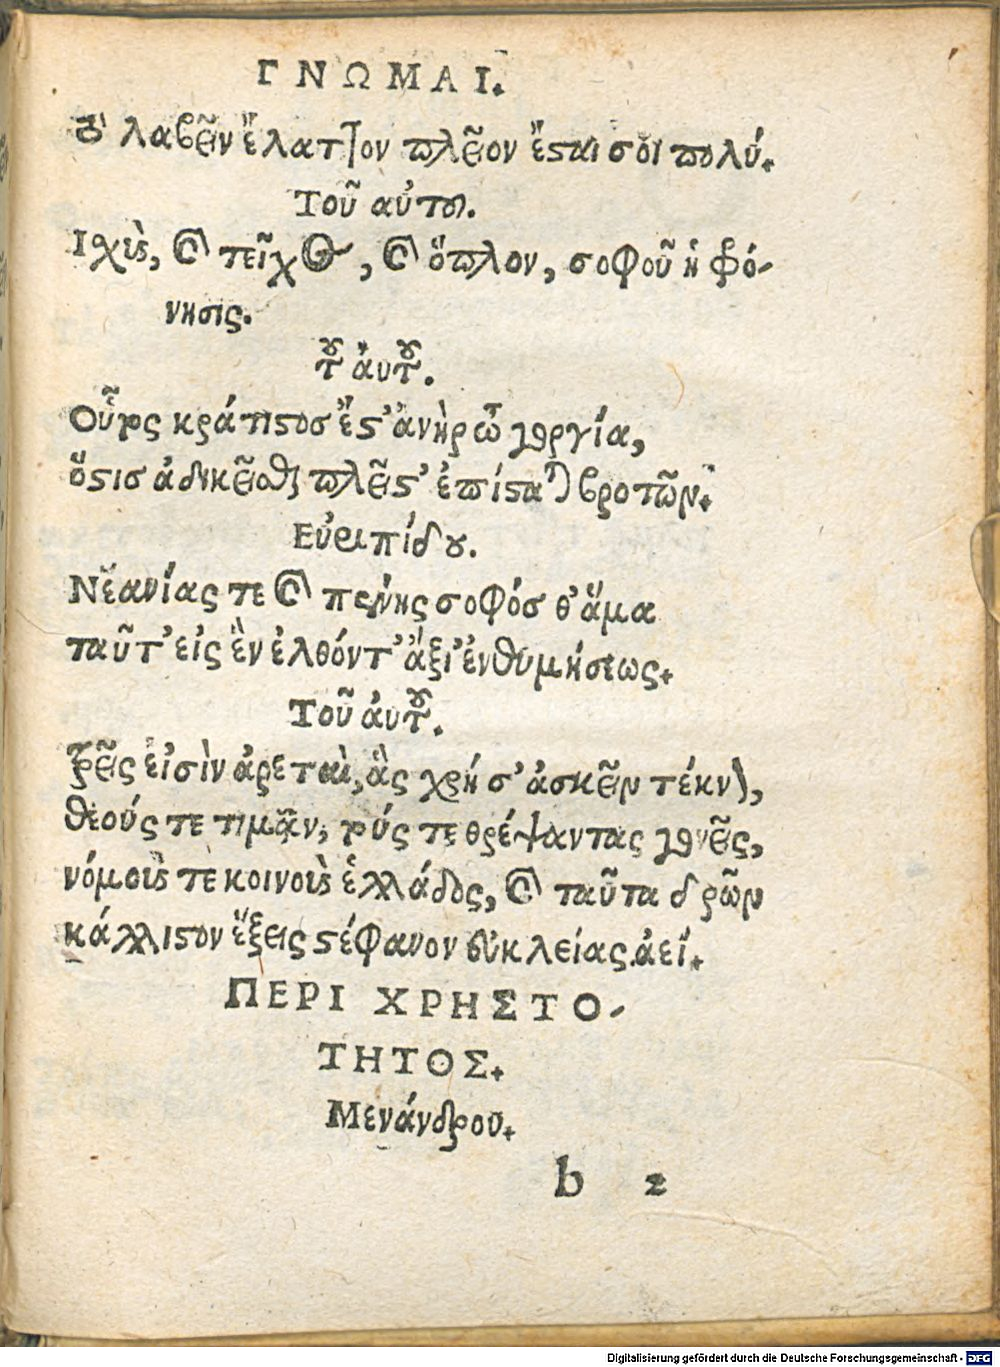 ΓΝΩΜΑΙ.
τὸ λαβεῖν ἔλαττον πλεῖον ἔσται σοι πολύ.
Τοῦ αὐτοῦ.
Ισχὺς, καὶ τεῖχος, καὶ ὅπλον, σοφοῦ ἡ φρό-
νησις.
τοῦ ἀυτοῦ.
Οὗτος κράτιστος ἔστ' ἀνὴρ ὦ γοργία,
ὅστις ἀδικεῖσθαι πλεῖστ' ἐπίσταται βροτῶν.
Εὐριπίδου.
Νεανίας τε καὶ πένης σοφός θ' ἅμα
ταῦτ' εἰς ἓν ἐλθόντ' ἄξι' ἐνθυμήσεως.
Τοῦ ἀυτοῦ.
Τρεῖς εἰσὶν ἀρεταὶ, ἃς χρή σ' ἀσκεῖν τέκνον,
θεούς τε τιμᾶν, τούς τε θρέψαντας γονεῖς,
νόμους τε κοινοὺς ἑλλάδος, καὶ ταῦτα δρῶν
κάλλιστον ἕξεις στέφανον εὐκλείας ἀεί.
ΠΕΡΙ ΧΡΗΣΤΟ-
ΤΗΤΟΣ.
Μενάνδρου.
b 2
Digitalisierung gefördert durch die Deutsche Forschungsgemeinschaft - DFG